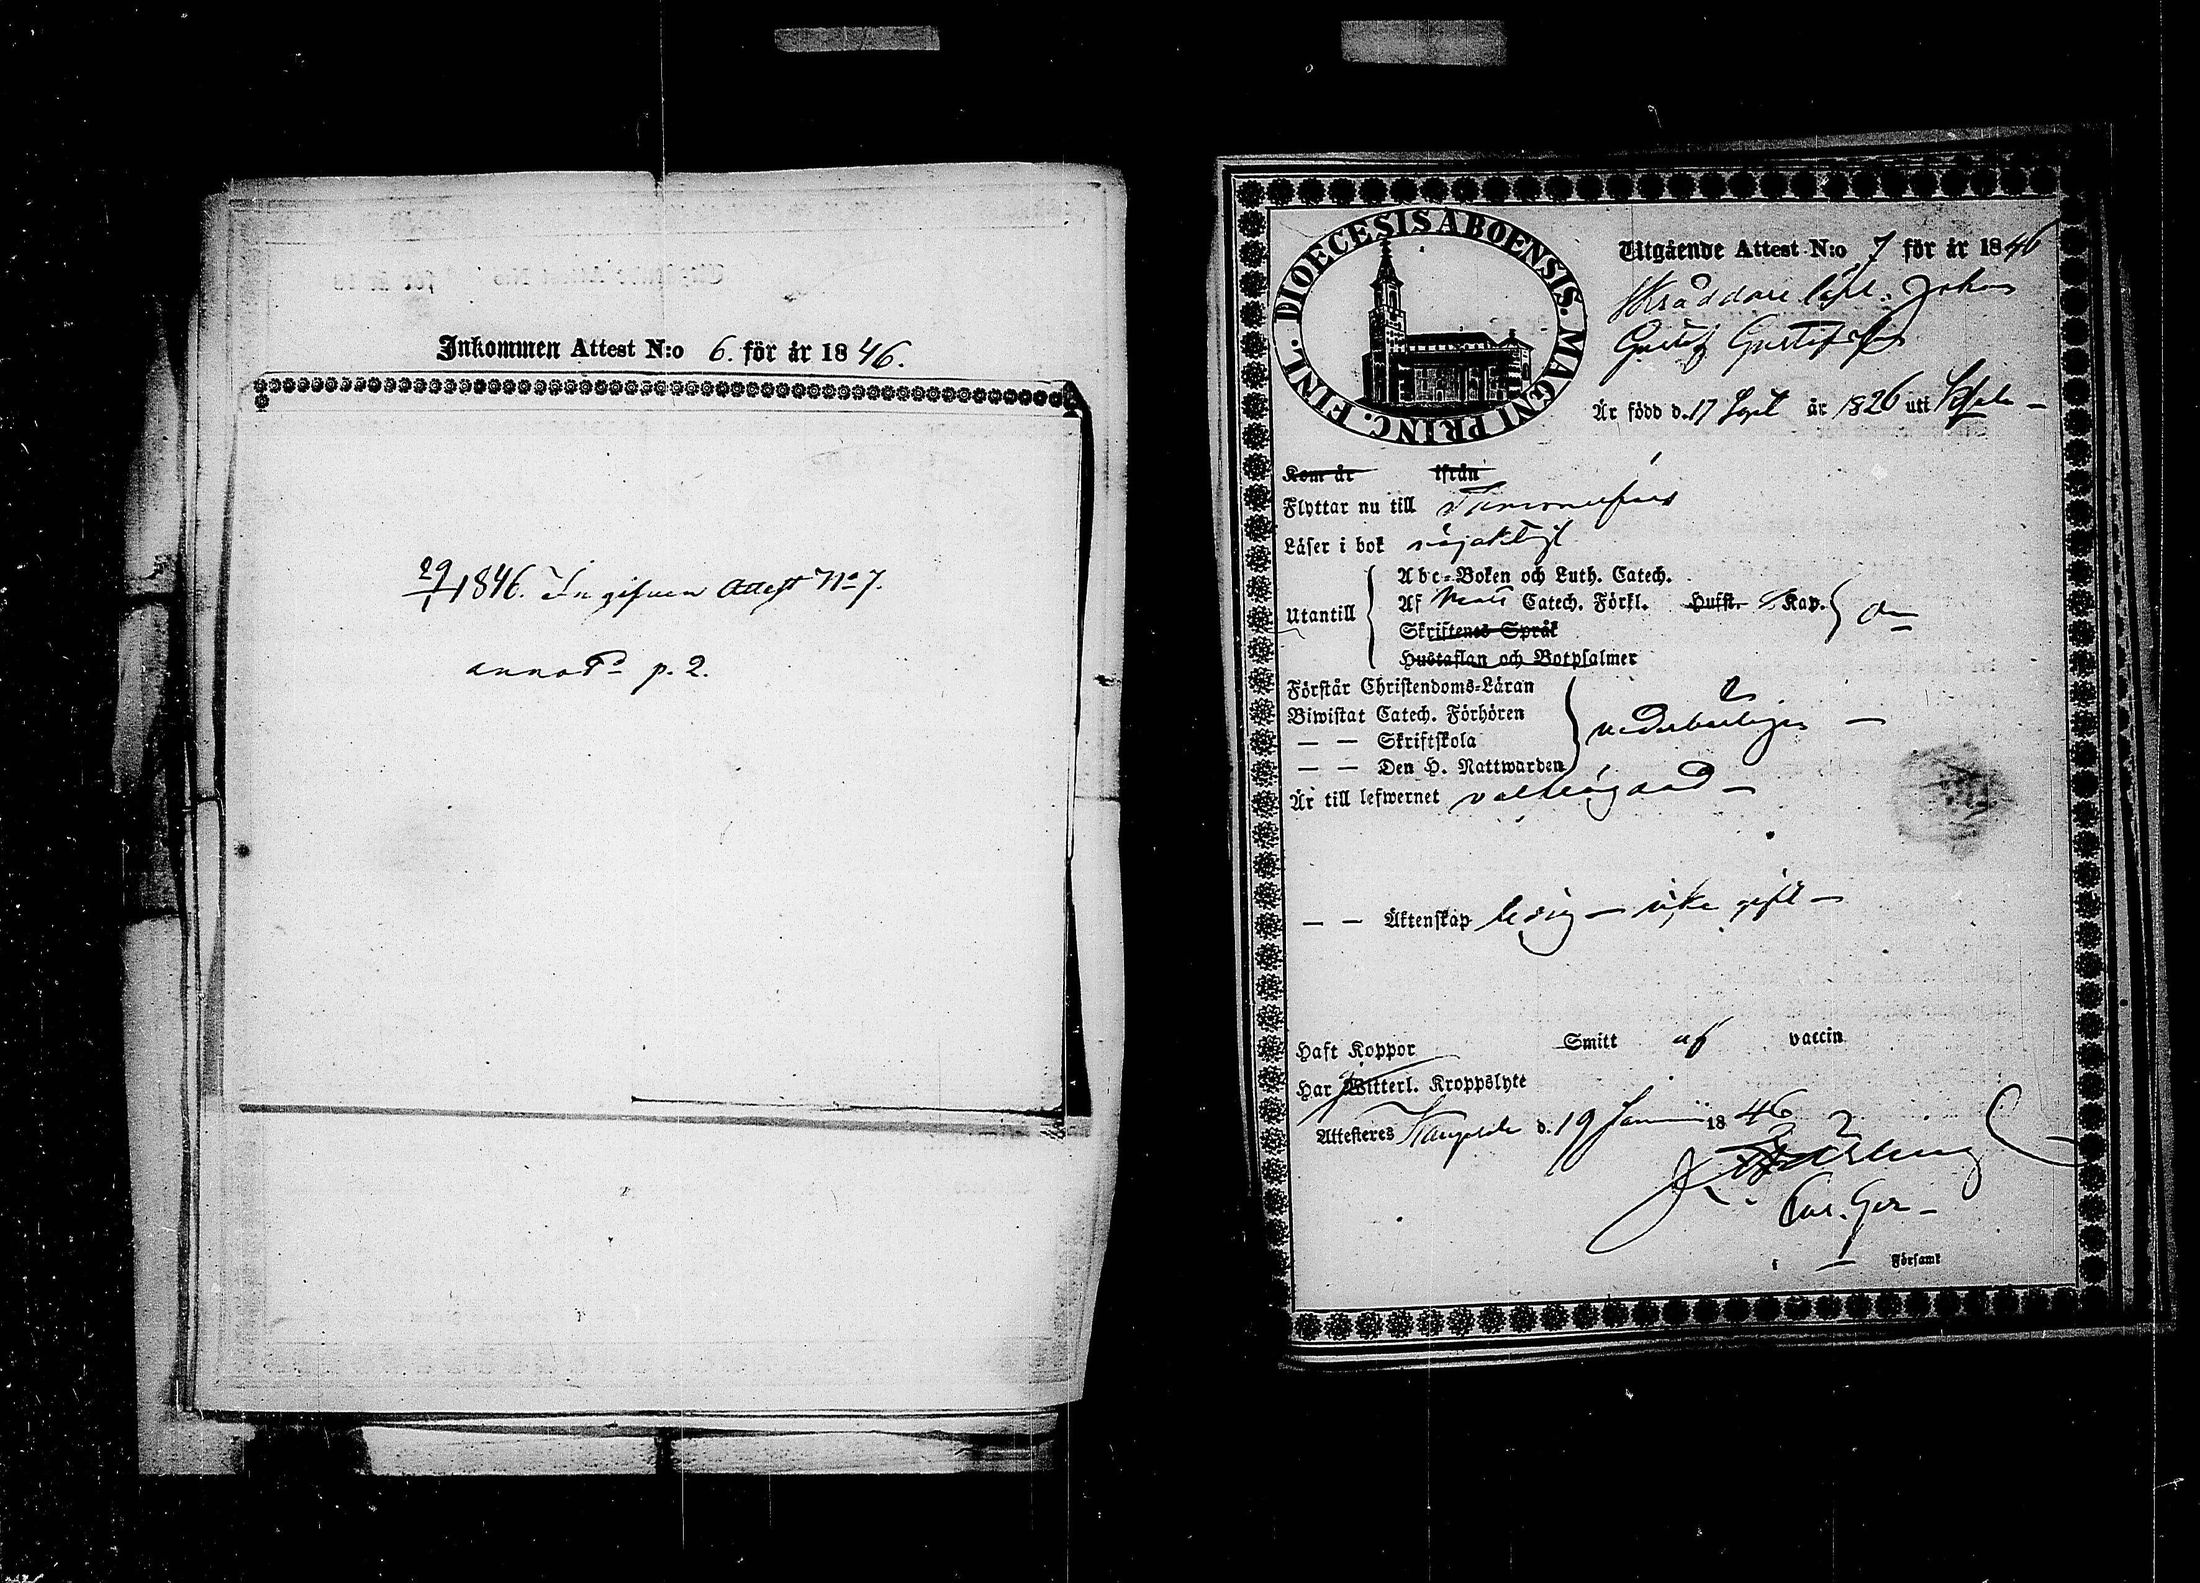 Inkommen Attest N:o 6. för år 1846.
29/1 1846. Ingifven Attest No 7.
annot. p. 2.
DIOECESIS ABOENSIS. MAGNI PRINC. FINL.
Utgående Attest N:o 7 för år 1846
Skräddare Johan
Gustaf Gustafsson
Är född d. 17 Sept år 1826 uti
Kom år ifrån
Flyttar nu till Tammerfors
Läser i bok nöjaktigt
Abc-Boken och Luth. Catech.
Utantill Af Catech. Förkl. Hufst. Kap.
Skriftenes Språk
Hustaflan och Botpsalmer
Förstår Christendoms-Läran
Biwistat Catech. Förhören
— — Skriftskola
— — Den H. Nattwarden
Är till lefwernet välfrägdad —
— — Äktenskap ledig — icke gift —
Haft Koppor Smitt af vaccin
Har Witterl. Kroppslyte
Attesteras d. 19 Januari 1846
Församl